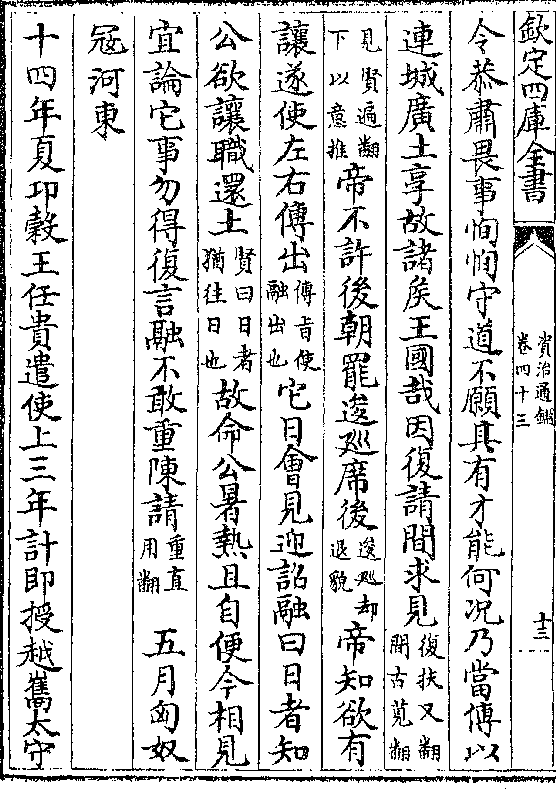 欽定四庫全書
資治通鑑
卷四十三
十三
令恭肅畏事恂恂守道不願其有才能何況乃當傳以
連城廣土享故諸侯王國哉因復請間求見復扶又翻
間古莧翻
見賢遍翻
下以意推帝不許後朝罷逡巡席後逡巡却
退貌帝知欲有
讓遂使左右傳出傳旨使
融出也它日會見迎詔融曰日者知
公欲讓職還土賢曰日者
猶往日也故命公暑熱且自便今相見
宜論它事勿得復言融不敢重陳請重直
用翻五月匈奴
冦河東
十四年夏卭穀王任貴遣使上三年計即授越巂太守